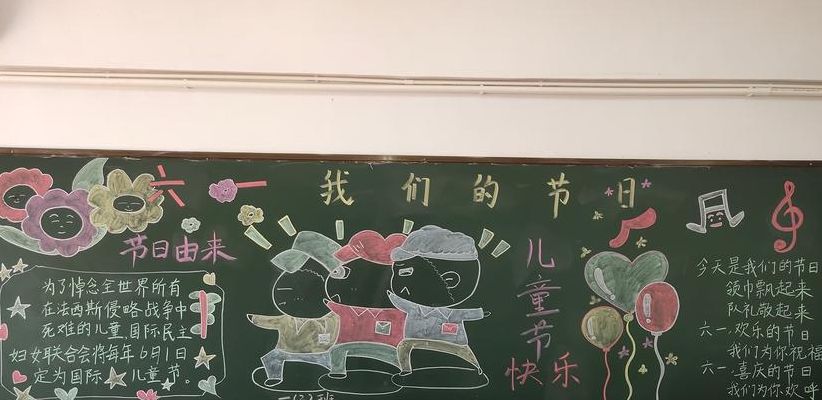 六一 我们的节日
节日由来
为了悼念全世界所有
在法西斯侵略战争中
死难的儿童，国际民主
妇女联合会将每年6月1日
定为国际儿童节。
儿童节
快乐
今天是我们的节日
领巾飘起来
队礼敬起来
六一·欢乐的节日
我们为你祝福
六一·喜庆的节日
我们为你欢呼